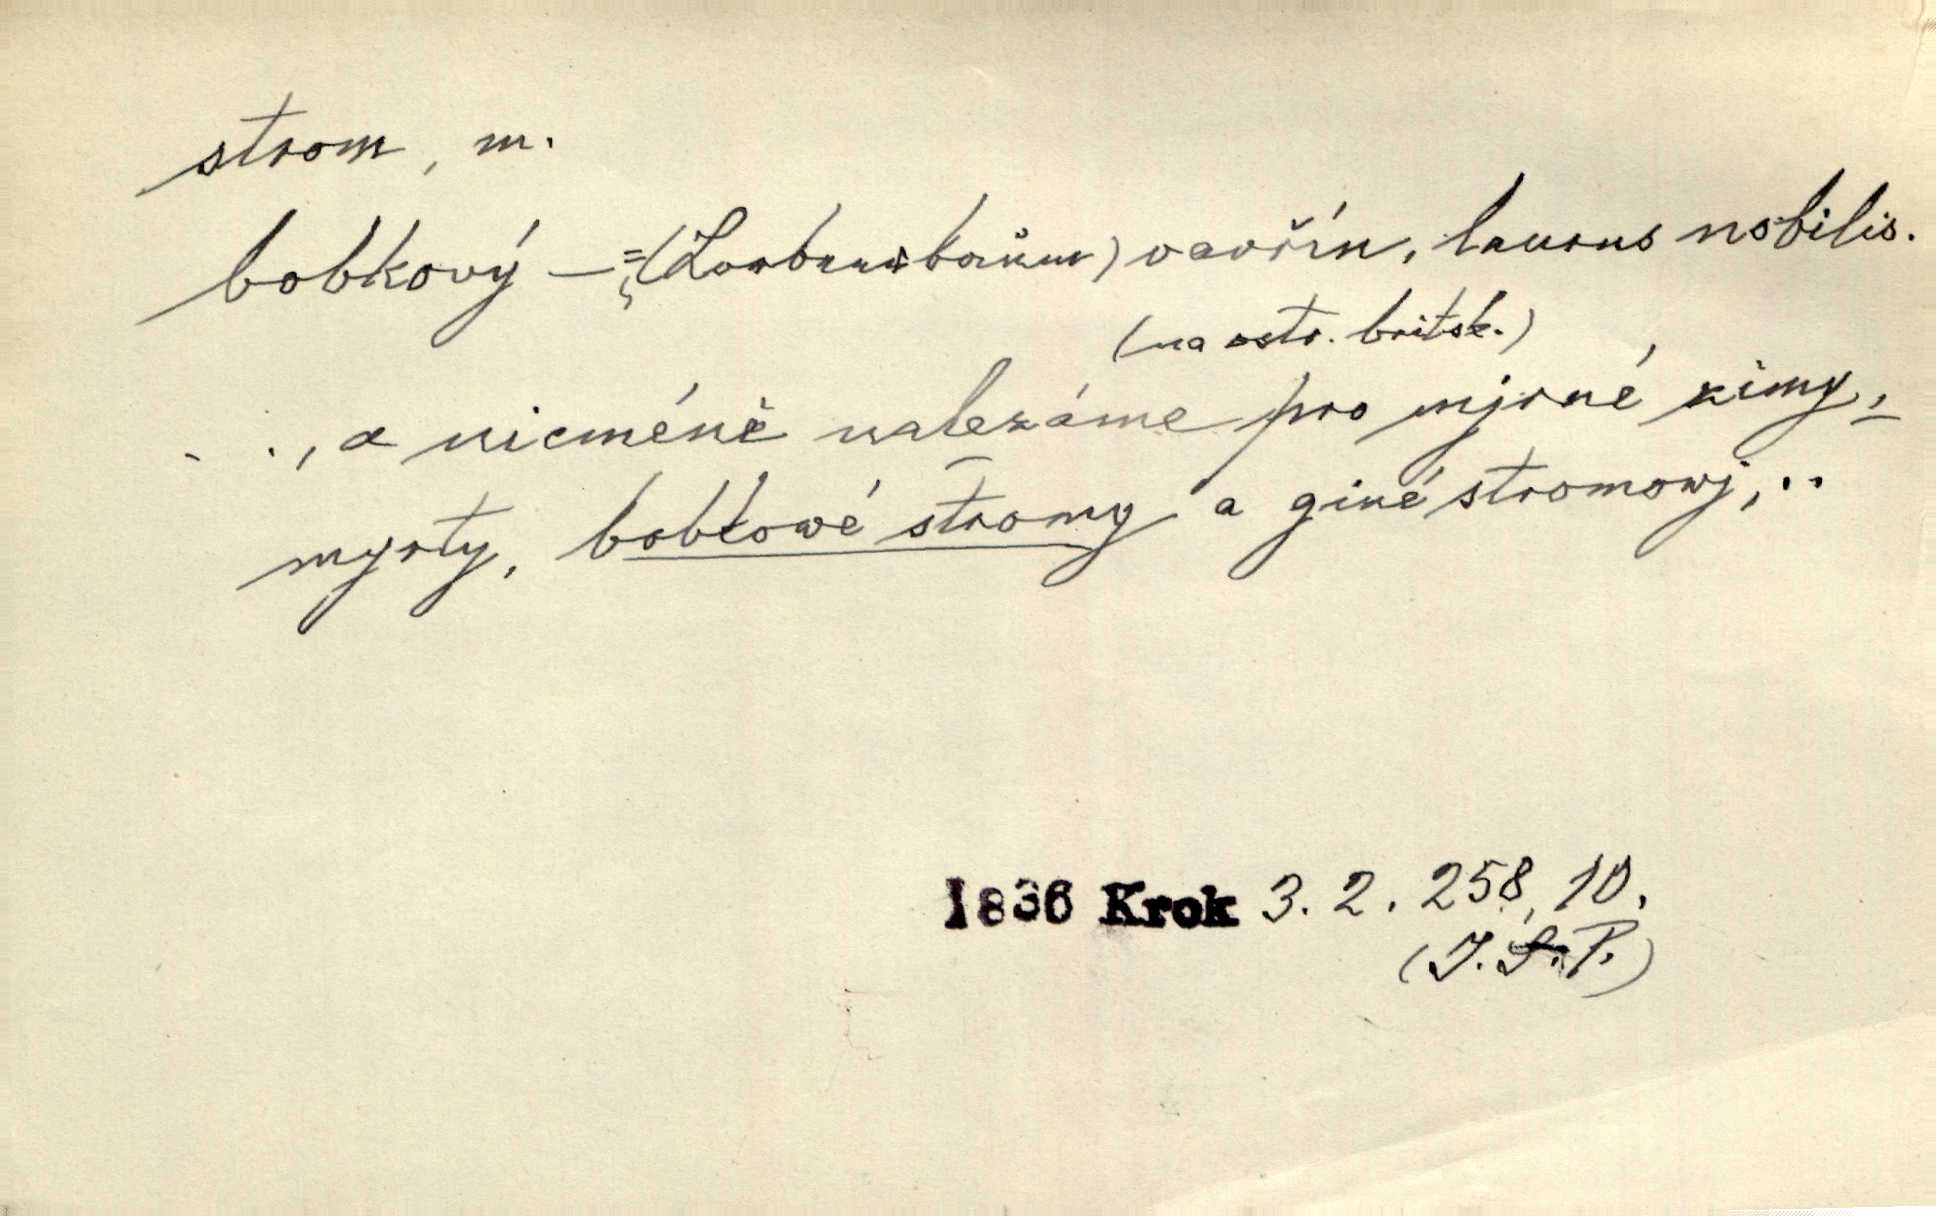 strom, m.
bobkový – = (Lorbeerbaum) vavřín, laurus nobilis.
(na ostr. britsk.)
. ., a nicméně nalezáme pro mjrné zimy,
myrty, bobkowé stromy a giné stromowj, ..
1836 Krok 3. 2. 258, 10.
(J. S. P.)